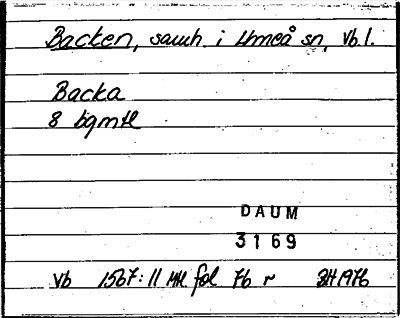 Backen, samh i Umeå sn, Vb l.
Backa
8 bgmtl
DAUM
3169
Vb 1567:11 Mtl. fol 7b r BH 1976